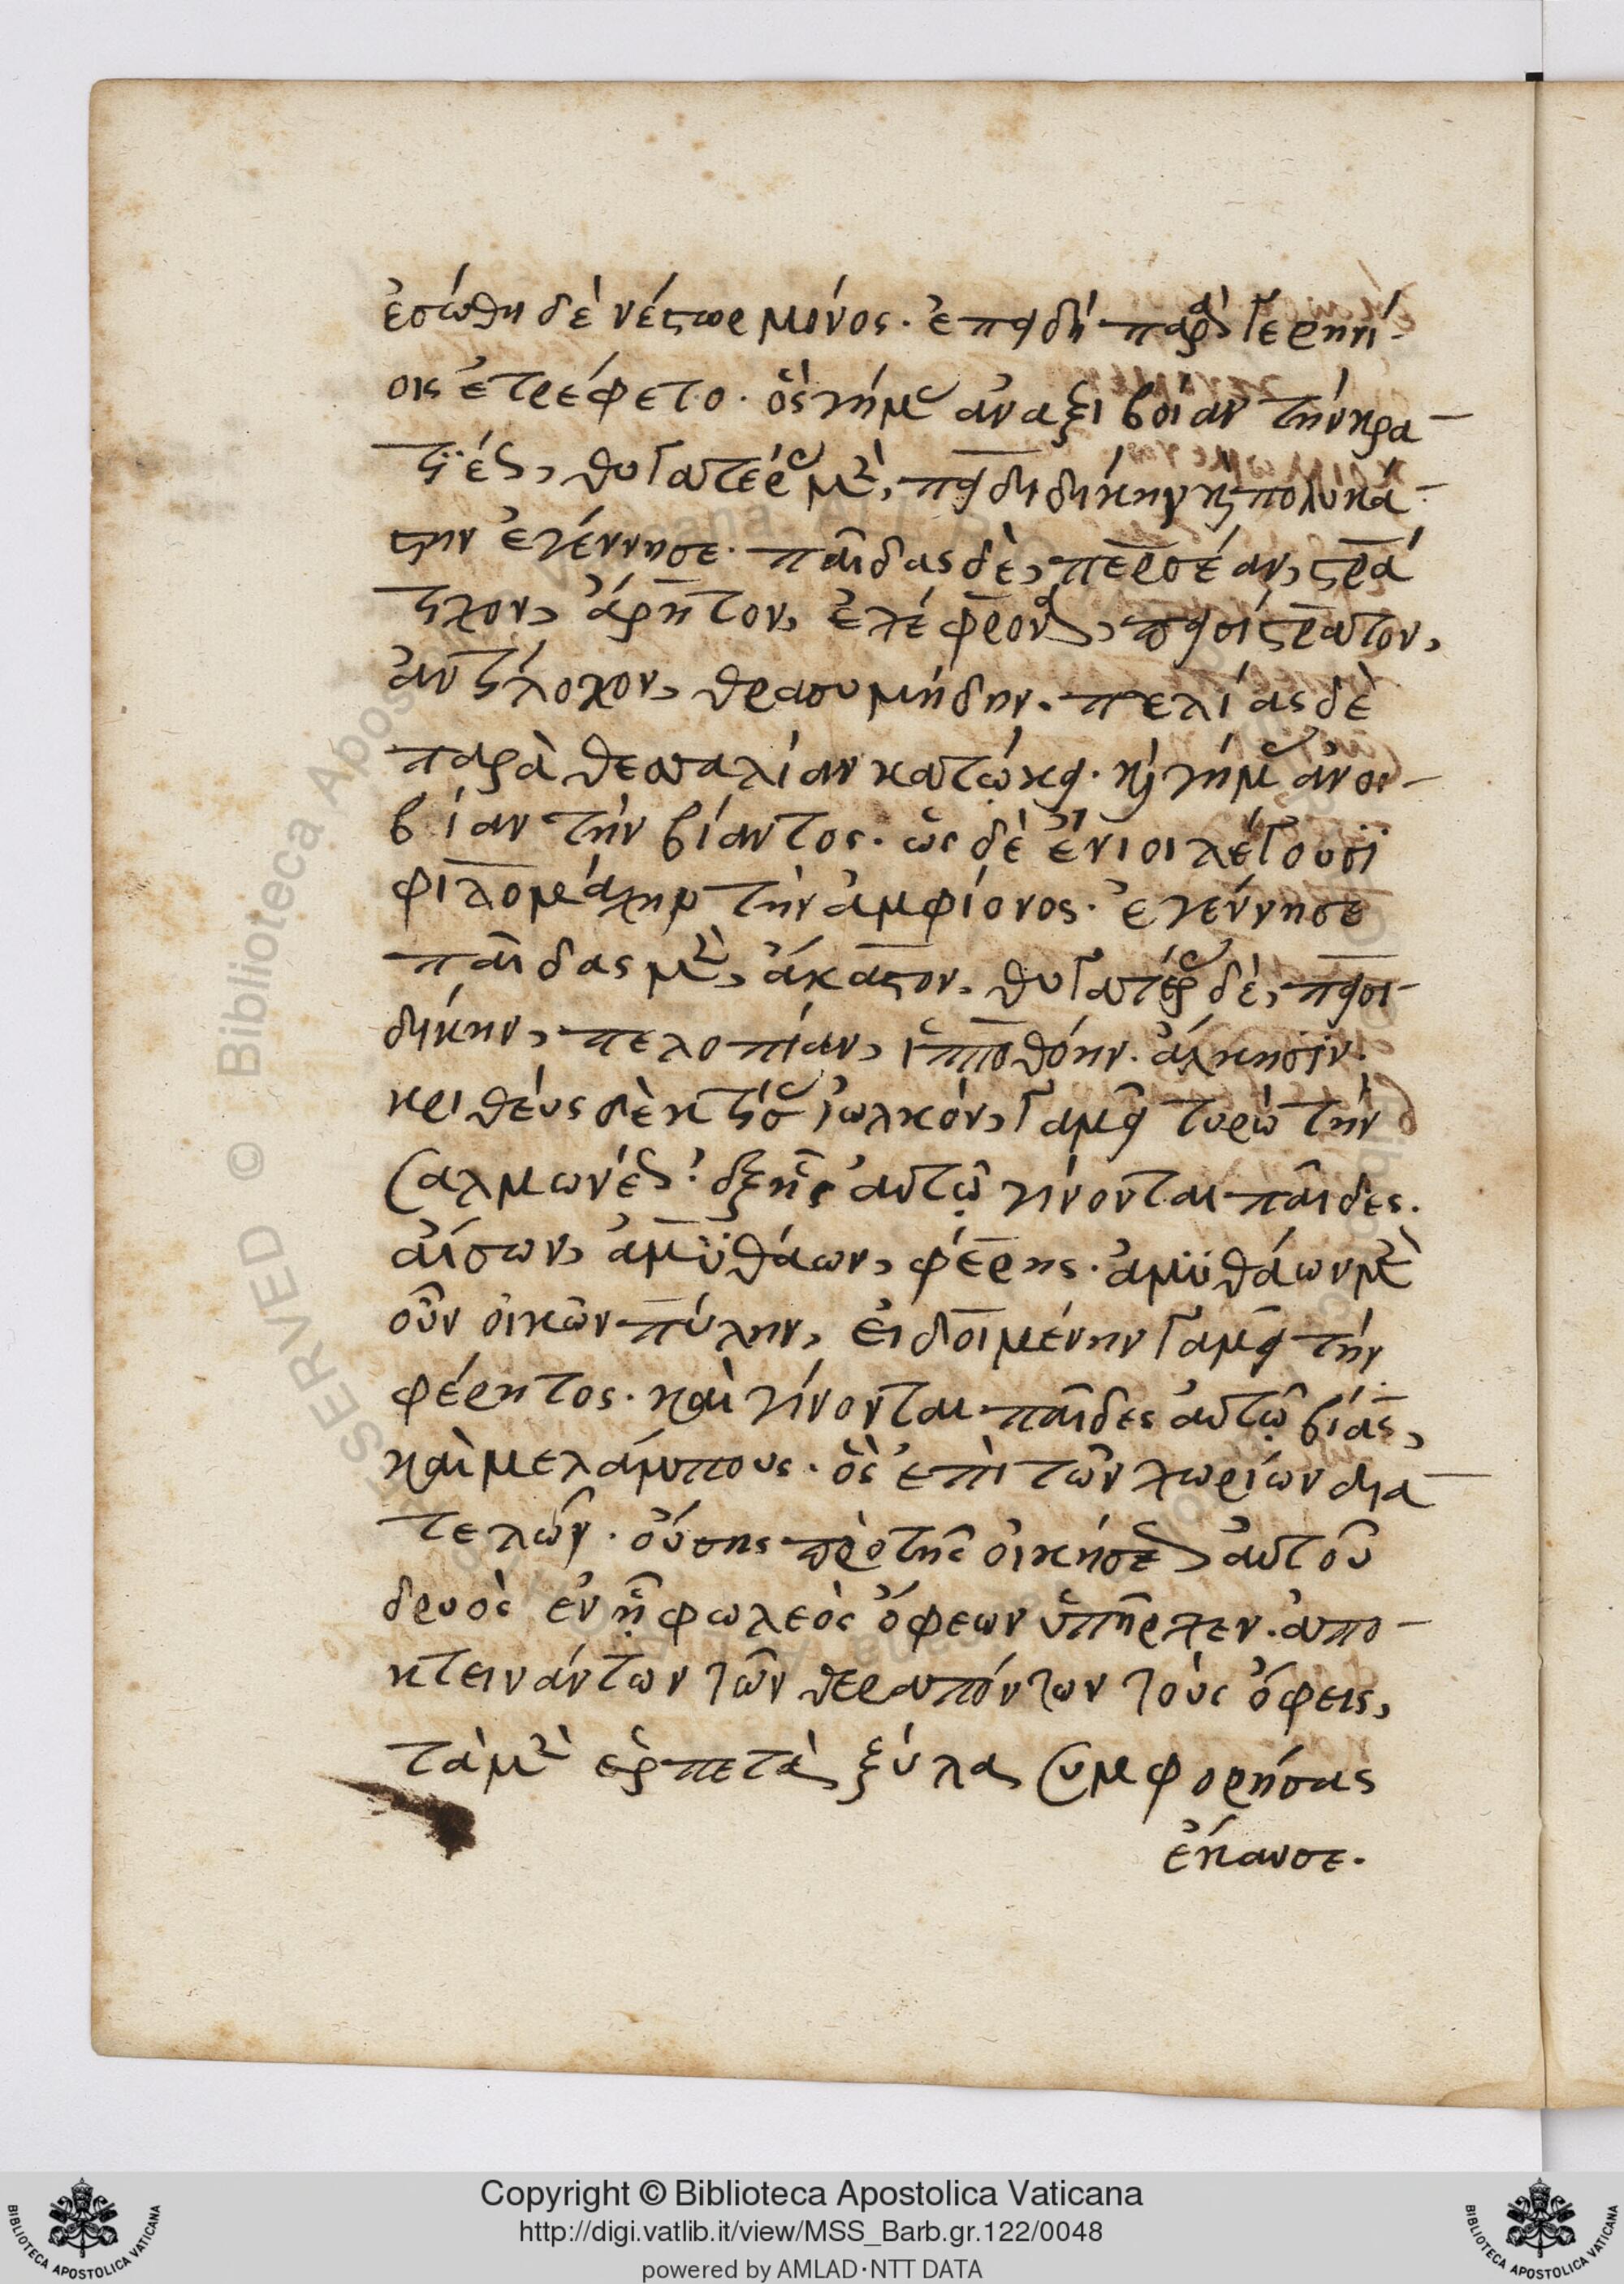 ἐσώθη δὲ νέστωρ μόνος. ἐπειδὴ παρὰ γερηνί-
οις ἐτρέφετο. ὃς γήμας ἀναξιβοίαν τὴν κρα-
τιέως, θυγατέρας μὲν, πεισιδίκην καὶ πολυκά-
στην ἐγέννησε. παῖδας δὲ, περσέαν, στρά
τιχον, ἄρητον, ἐχέφρονα, πεισίστρατον,
ἀντίλοχον, θρασυμήδην. πελίας δὲ
παρὰ θεσσαλίαν κατώκει. καὶ γήμας ἀνα-
βίαν τὴν βίαντος. ὡς δὲ ἔνιοι λέγουσϊ
φιλομάχην τὴν ἀμφίονος. ἐγέννησε
παῖδας μὲν, ἄκαστον. θυγατέρας δὲ, πεισι-
δίκην, πελοπίαν, ἱπποθόην. ἄλκηστϊν.
κριθεὺς δὲ κτίσας ἰωλκὸν, γαμεῖ τυρὼ τὴν
σαλμωνέως. ἐξ ἧς αὐτῷ γίνονται παῖδες.
αἴσων, ἀμϋθάων, φέρης. ἀμϋθάων μὲν
οὖν οἰκῶν πύλην, εἰδοιμένην γαμεῖ τὴν
φέρητος. καὶ γίνονται παῖδες αὐτῷ βίας,
καὶ μελάμπους. ὃς ἐπὶ τῶν χωρίων δια-
τελῶν. οὔσης πρὸ τῆς οἰκήσεως αὐτοῦ
δρυὸς ἐν ᾗ φωλεὸς ὄφεων ὑπῆρχεν. ἀπο-
κτεινάντων τῶν θεραπόντων τοὺς ὄφεις,
τὰ μὲν ἑρπετὰ, ξύλα συμφορήσας
ἔκαυσε.
Copyright © Biblioteca Apostolica Vaticana
http://digi.vatlib.it/view/MSS_Barb.gr.122/0048
powered by AMLAD·NTT DATA
BIBLIOTECA APOSTOLICA VATICANA
BIBLIOTECA APOSTOLICA VATICANA